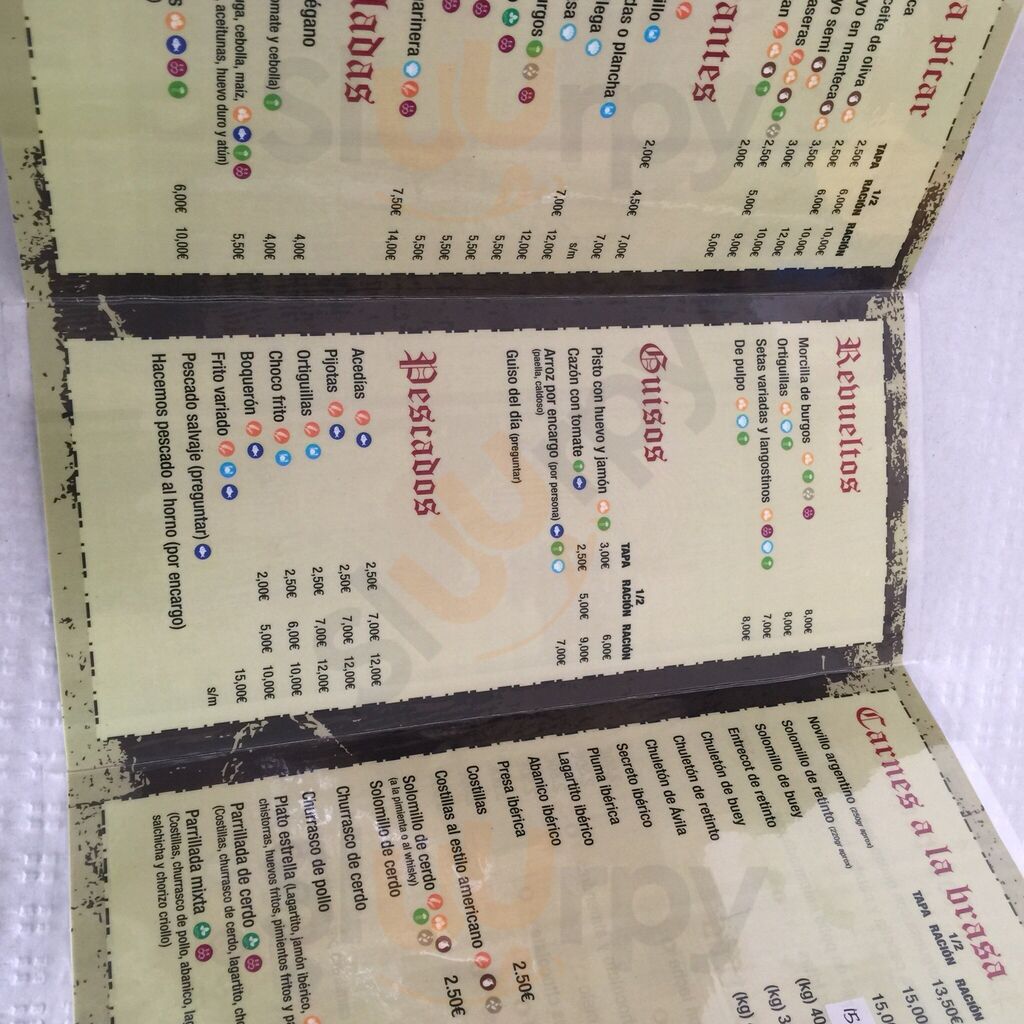 a picar
TAPA 1/2 RACIÓN RACIÓN
ceite de oliva 2,50€ 6,00€ 10,00€
yo en manteca 2,50€ 6,00€ 10,00€
yo semi 3,50€ 12,00€
aseras 3,00€ 10,00€
an 2,50€ 5,00€ 9,00€
2,00€ 5,00€
antes
illo 2,00€
das o plancha 4,50€ 7,00€
lega 7,00€
sa s/m
7,00€ 12,00€
urgos 12,00€
5,50€
5,50€
5,50€
arinera 5,50€
7,50€ 14,00€
ladas
égano 4,00€
omate y cebolla) 4,00€
ga, cebolla, maíz, 5,50€
, aceitunas, huevo duro y atún)
s 6,00€ 10,00€
Revueltos
Morcilla de burgos 8,00€
Ortiguillas 8,00€
Setas variadas y langostinos 7,00€
De pulpo 8,00€
Guisos
TAPA 1/2 RACIÓN RACIÓN
Pisto con huevo y jamón 3,00€ 6,00€
Cazón con tomate 2,50€ 5,00€ 9,00€
Arroz por encargo (por persona) 7,00€
(paella, caldoso)
Guiso del día (preguntar)
Pescados
Acedías 2,50€ 7,00€ 12,00€
Pijotas 2,50€ 7,00€ 12,00€
Ortiguillas 2,50€ 7,00€ 12,00€
Choco frito 2,50€ 6,00€ 10,00€
Boquerón 2,00€ 5,00€ 10,00€
Frito variado 15,00€
Pescado salvaje (preguntar) s/m
Hacemos pescado al horno (por encargo)
Carnes a la brasa
TAPA 1/2 RACIÓN RACIÓN
Novillo argentino (250gr aprox) 13,50€
Solomillo de retinto (220gr aprox) 15,00
Solomillo de buey 15,0
Entrecot de retinto 15
Chuletón de buey (kg) 40
Chuletón de retinto (kg) 3
Chuletón de Ávila (kg)
Secreto ibérico
Pluma ibérica
Lagartito ibérico
Abanico ibérico
Presa ibérica
Costillas 2.50€
Costillas al estilo americano 2.50€
Solomillo de cerdo
(a la pimienta o al whisky)
Solomillo de cerdo
Churrasco de cerdo
Churrasco de pollo
Plato estrella (Lagartito, jamón ibérico,
chistorras, huevos fritos, pimientos fritos y p
Parrillada de cerdo
(Costillas, churrasco de cerdo, lagartito, cho
Parrillada mixta
(Costillas, churrasco de pollo, abanico, lag
salchicha y chorizo criollo)
Sluurpy
Sluurpy
Sluurpy